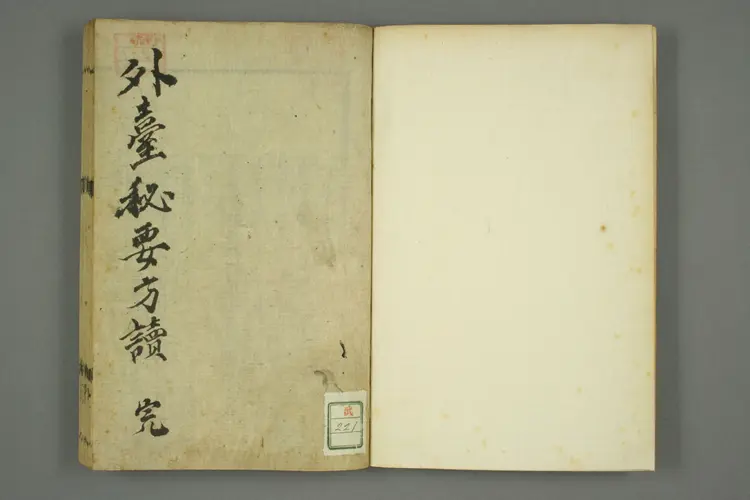 外臺秘要方讀 完
貳
221